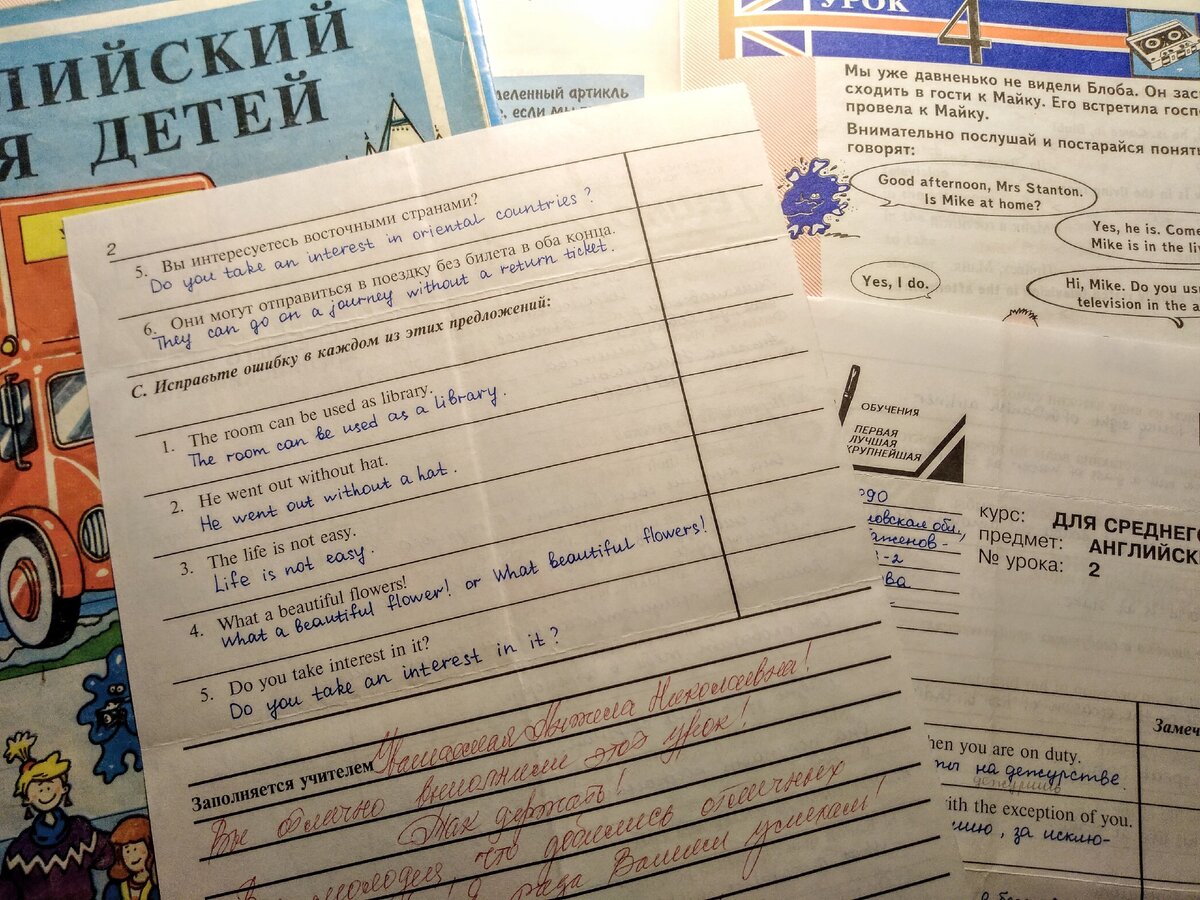 ЛИЙСКИЙ
Я ДЕТЕЙ
еленный артикль
, если мы
УРОК 4
Мы уже давненько не видели Блоба. Он зас
сходить в гости к Майку. Его встретила госп
провела к Майку.
Внимательно послушай и постарайся понять
говорят:
Good afternoon, Mrs Stanton.
Is Mike at home?
Yes, he is. Come
Mike is in the li
Yes, I do.
Hi, Mike. Do you us
television in the a
2
5. Вы интересуетесь восточными странами?
Do you take an interest in oriental countries?
6. Они могут отправиться в поездку без билета в оба конца.
They can go on a journey without a return ticket.
C. Исправьте ошибку в каждом из этих предложений:
1. The room can be used as library.
The room can be used as a library.
2. He went out without hat.
He went out without a hat.
3. The life is not easy.
Life is not easy.
4. What a beautiful flowers!
What a beautiful flower! or What beautiful flowers!
5. Do you take interest in it?
Do you take an interest in it?
Заполняется учителем
Анжела Николаевна!
Вы отлично выполнили этот урок!
Так держать!
молодец, что добились отличных
рада Вашим успехам!
ОБУЧЕНИЯ
ПЕРВАЯ
ЛУЧШАЯ
КРУПНЕЙШАЯ
ловская обл.,
женов-
-2
ва
курс: ДЛЯ СРЕДНЕГО
предмет: АНГЛИЙСК
№ урока: 2
Замеч
hen you are on duty.
ты на дежурстве.
дежуришь
ith the exception of you.
нию, за исклю-